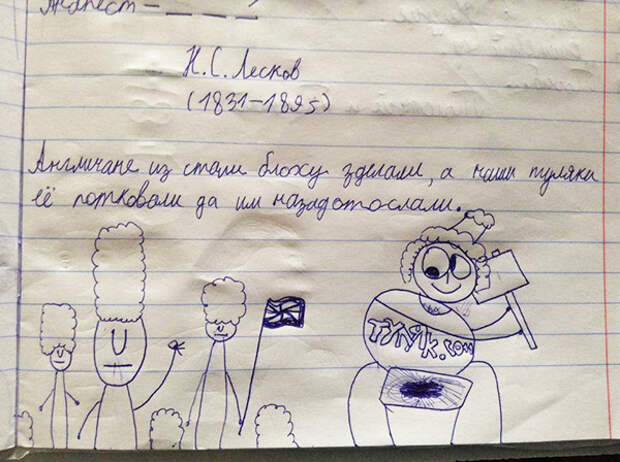 Анапест –
Н.С. Лесков
(1831–1895)
Англичане из стали блоху зделали, а наши туляки
её потковали да им назадотослали.
ТУЛЯК.com